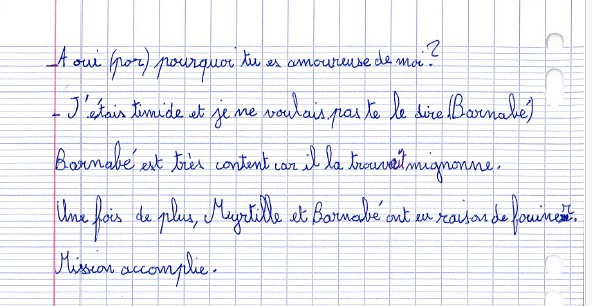 - A oui (por) pourquoi tu es amoureuse de moi?
- J'étais timide et je ne voulais pas te le dire (Barnabé)
Barnabé est très content car il la trouvait mignonne.
Une fois de plus, Myrtille et Barnabé ont eu raison de fouiner.
Mission accomplie.